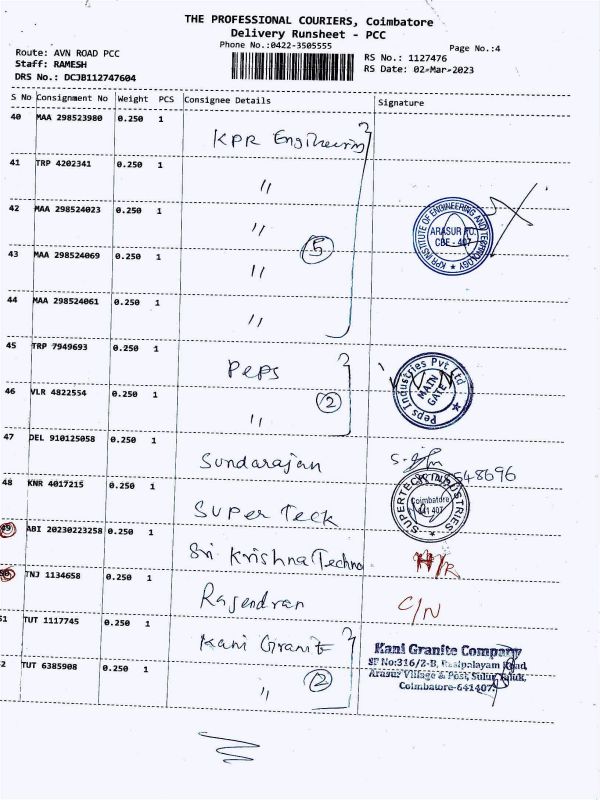 THE PROFESSIONAL COURIERS, Coimbatore
Delivery Runsheet - PCC
Phone No.:0422-3505555
Page No.:4
Route: AVN ROAD PCC
Staff: RAMESH
DRS No.: DCJB112747604
RS No.: 1127476
RS Date: 02-Mar-2023
S No Consignment No Weight PCS Consignee Details Signature
40 MAA 298523980 0.250 1 KPR Engineering
41 TRP 4202341 0.250 1 "
42 MAA 298524023 0.250 1 "
KPR INSTITUTE OF ENGINEERING AND TECHNOLOGY
ARASUR PO.
CBE - 407
5
43 MAA 298524069 0.250 1 "
44 MAA 298524061 0.250 1 "
45 TRP 7949693 0.250 1 Peps
Peps Industries Pvt Ltd
MAIN GATE
2
46 VLR 4822554 0.250 1 "
47 DEL 910125058 0.250 1 Sundarajan
48 KNR 4017215 0.250 1 Super Teck
SUPERTECK INDUSTRIES
Coimbatore
641 407
49 ABI 20230223258 0.250 1 Sri Krishna Techno
50 TNJ 1134658 0.250 1 Rajendran C/N
51 TUT 1117745 0.250 1 Kani Granite
Kani Granite Company
SF No:316/2-B, Rasipalayam Road,
Arasur Village & Post, Sulur Taluk,
Coimbatore-641407.
2
52 TUT 6385908 0.250 1 "